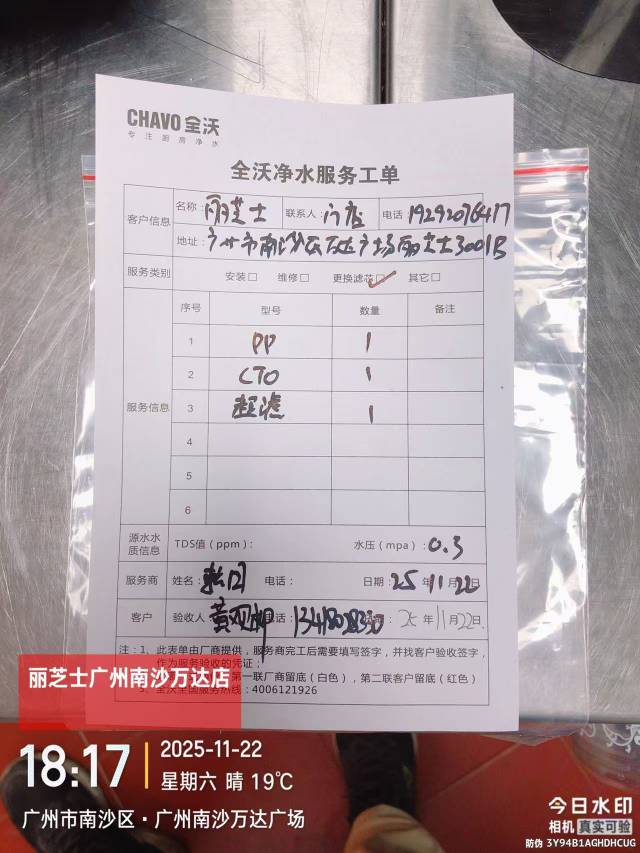 CHAVO 全沃
专注厨房净水
全沃净水服务工单
客户信息
名称：丽芝士 联系人：门店 电话 19292076417
地址：广州市南沙区万达广场丽芝士3001B
服务类别 安装□ 维修□ 更换滤芯☑ 其它□
服务信息
序号 型号 数量 备注
1 PP 1
2 CTO 1
3 超滤 1
4
5
6
源水水质信息 TDS值（ppm）： 水压（mpa）：0.3
服务商 姓名： 电话： 日期：25年11月22日
客户 验收人 电话： 25年11月22日
注：1、此表单由厂商提供，服务商完工后需要填写签字，并找客户验收签字，
作为服务验收的凭证；
第一联厂商留底（白色），第二联客户留底（红色）
3、全沃全国服务热线：4006121926
丽芝士广州南沙万达店
18:17
2025-11-22
星期六 晴 19℃
广州市南沙区·广州南沙万达广场
今日水印
相机 真实可验
防伪 3Y94B1AGHDHCUG